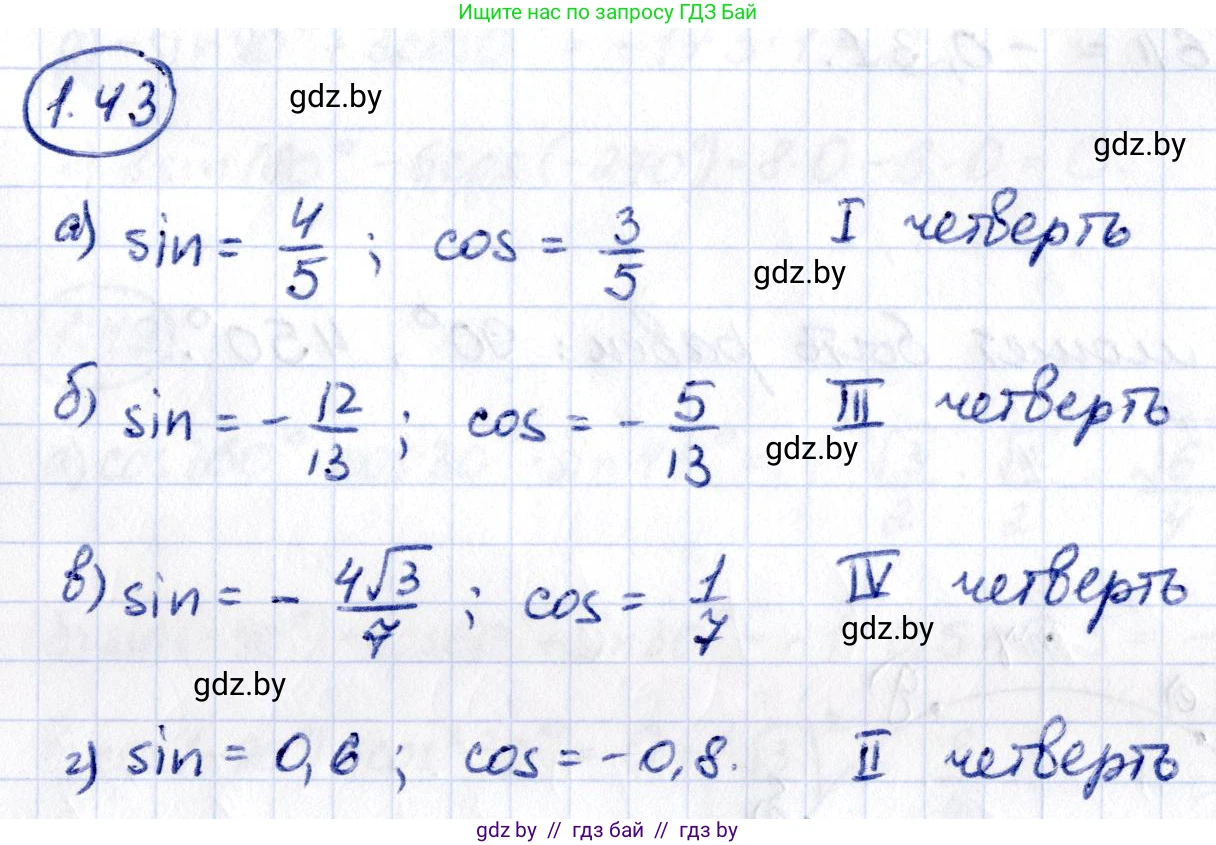 Ищите нас по запросу ГДЗ Бай
1.43
gdz.by
gdz.by
а) sin = 4/5 ; cos = 3/5 I четверть
gdz.by
б) sin = - 12/13 ; cos = - 5/13 III четверть
gdz.by
в) sin = - 4√3/7 ; cos = 1/7 IV четверть
gdz.by
gdz.by
г) sin = 0,6 ; cos = -0,8. II четверть
gdz.by // гдз бай // гдз by